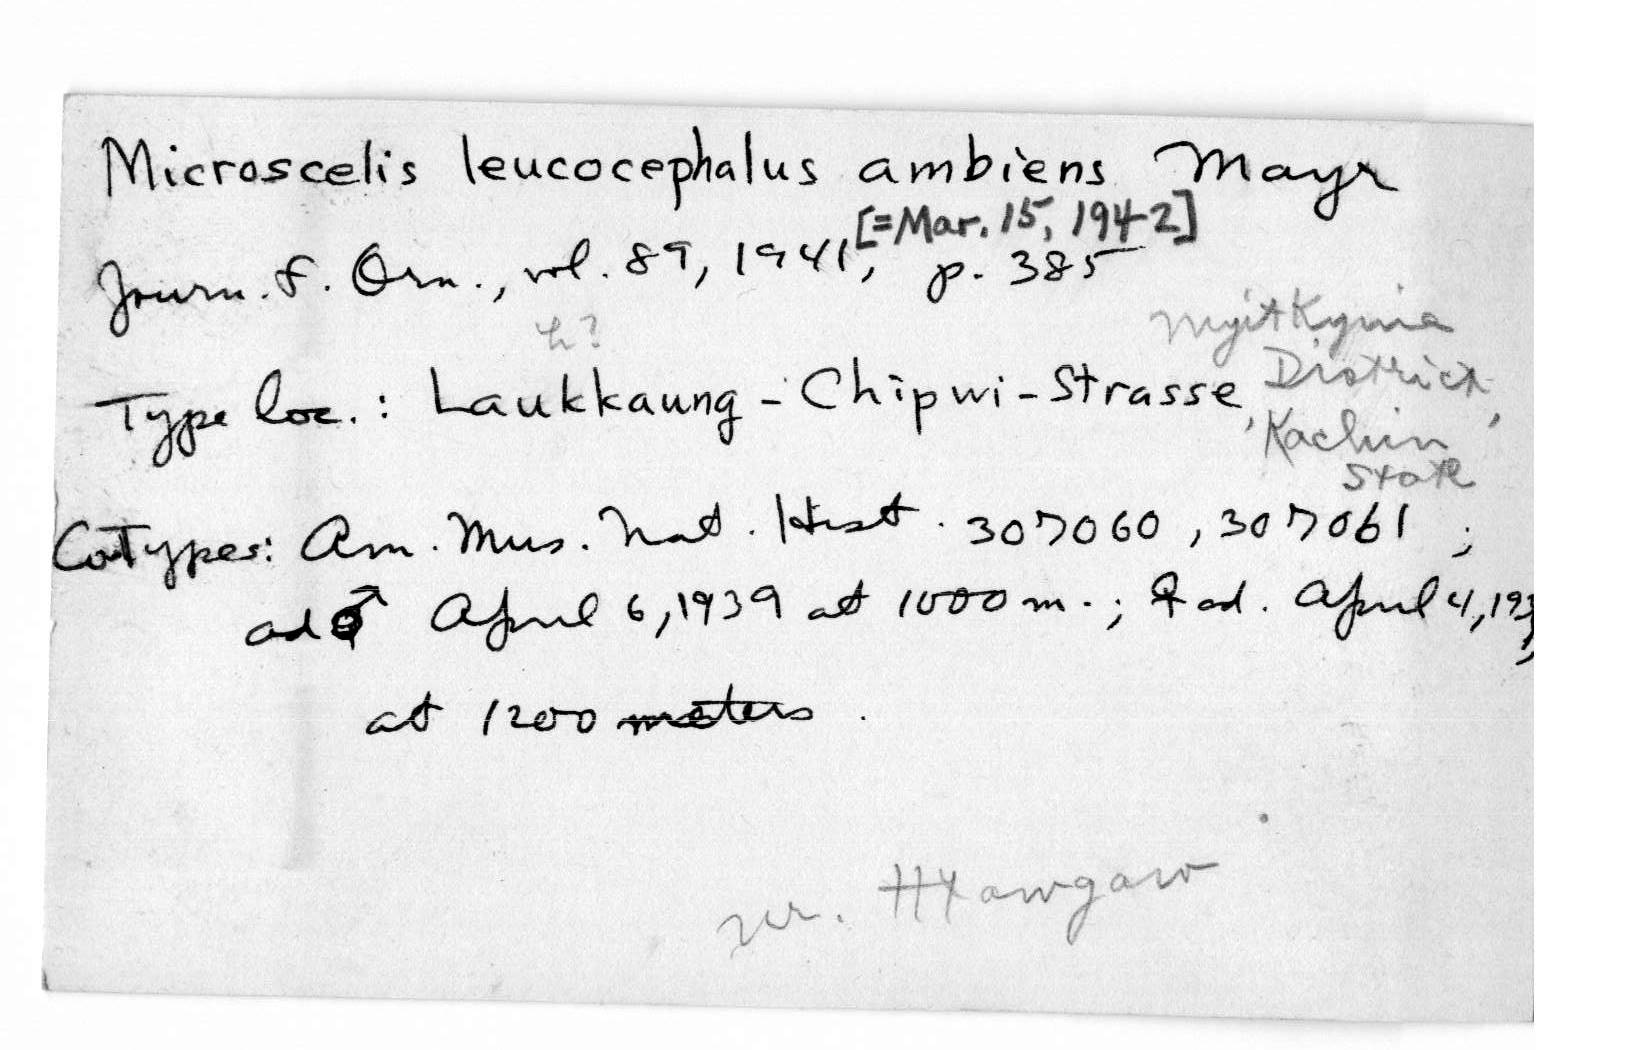 Microscelis leucocephalus ambiens Mayr
[=Mar. 15, 1942]
Journ. f. Orn., vol. 89, 1941, p. 385
h?
Type loc.: Laukkaung-Chipwi-Strasse, Myitkyina
District,
Kachin
State
Cotypes: Am. Mus. Nat. Hist. 307060, 307061;
ad ♂ April 6, 1939 at 1000 m.; ♀ ad. April 4, 193
at 1200 meters.
nr. Htawgaw